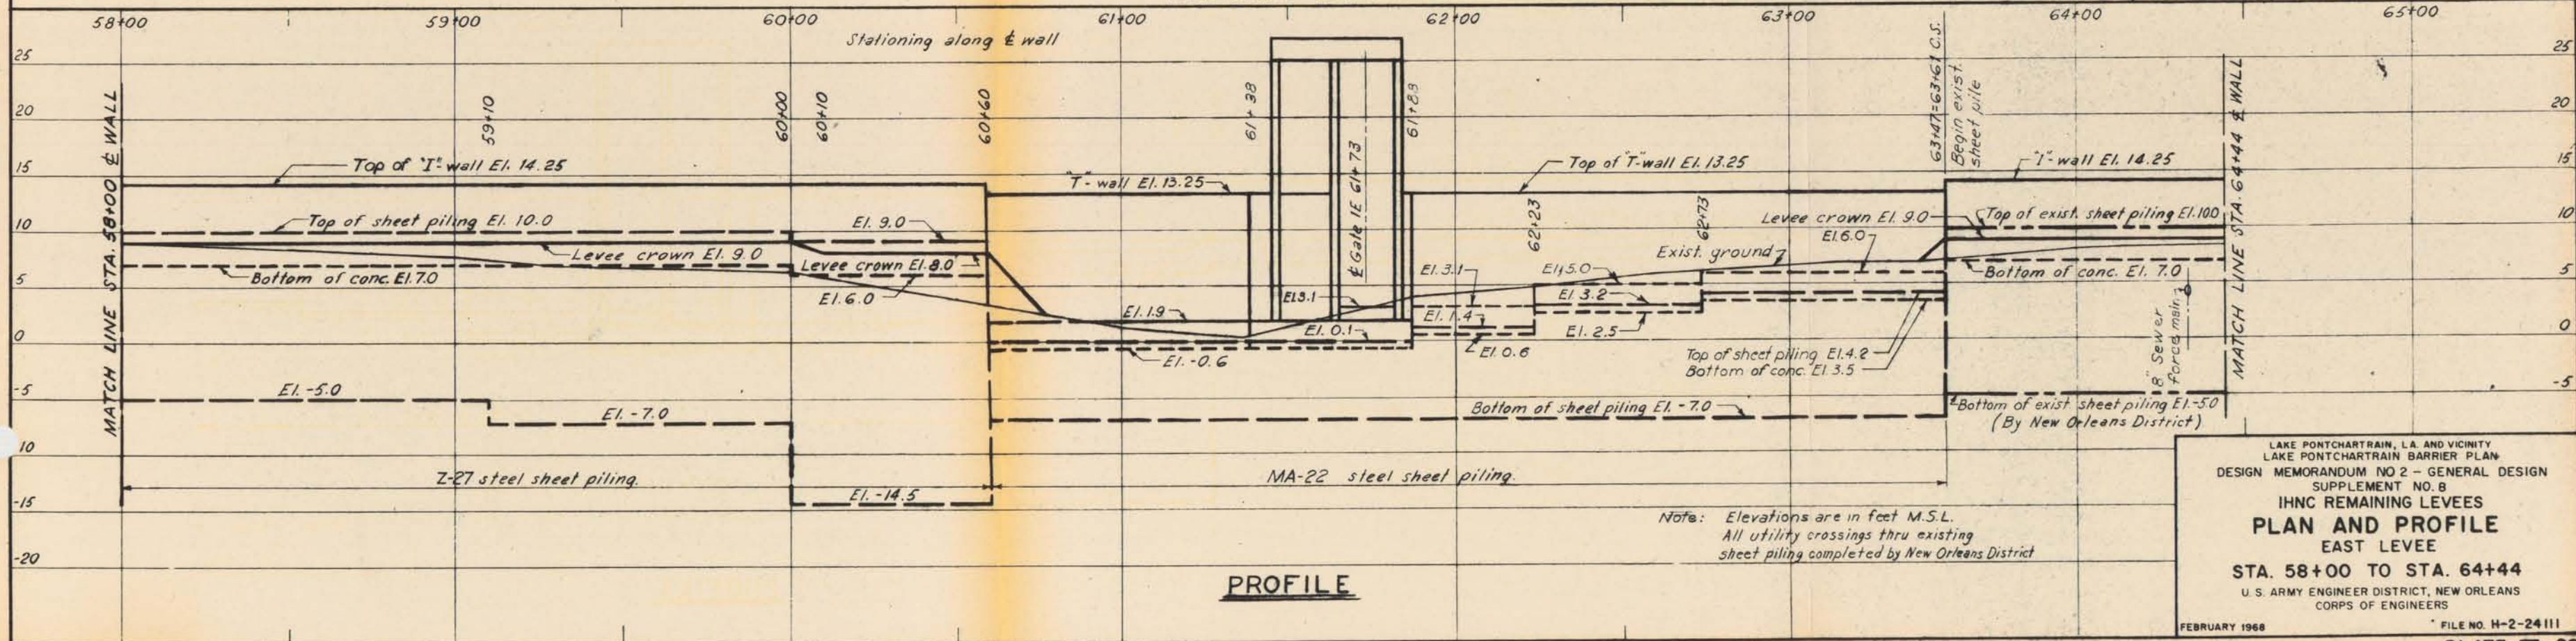 58+00 59+00 60+00 61+00 62+00 63+00 64+00 65+00
Stationing along ℄ wall
25
20
15
10
5
0
-5
10
-15
-20
25
20
15
10
5
0
-5
MATCH LINE STA. 58+00 ℄ WALL
59+10
60+00
60+10
60+60
61+38
61+88
℄ Gate 1E 61+73
62+23
62+73
63+47=63+61 C.S.
Begin exist.
sheet pile
MATCH LINE STA. 64+44 ℄ WALL
Top of "I"-wall El. 14.25
"T"-wall El. 13.25
Top of "T"-wall El. 13.25
"I"-wall El. 14.25
Top of sheet piling El. 10.0
El. 9.0
Levee crown El. 9.0
Top of exist. sheet piling El. 10.0
El. 6.0
Levee crown El. 9.0
Levee crown El. 8.0
Exist. ground
Bottom of conc. El. 7.0
El. 6.0
El. 3.1
El. 3.1
El. 5.0
Bottom of conc. El. 7.0
El. 1.9
El. 0.1
El. 1.4
El. 3.2
El. -0.6
El. 0.6
El. 2.5
Top of sheet piling El. 4.2
Bottom of conc. El. 3.5
8" Sewer
force main
El. -5.0
El. -7.0
Bottom of sheet piling El. -7.0
Bottom of exist. sheet piling El. -5.0
(By New Orleans District)
Z-27 steel sheet piling.
MA-22 steel sheet piling.
El. -14.5
Note: Elevations are in feet M.S.L.
All utility crossings thru existing
sheet piling completed by New Orleans District
PROFILE
LAKE PONTCHARTRAIN, LA. AND VICINITY
LAKE PONTCHARTRAIN BARRIER PLAN
DESIGN MEMORANDUM NO 2 - GENERAL DESIGN
SUPPLEMENT NO. 8
IHNC REMAINING LEVEES
PLAN AND PROFILE
EAST LEVEE
STA. 58+00 TO STA. 64+44
U. S. ARMY ENGINEER DISTRICT, NEW ORLEANS
CORPS OF ENGINEERS
FEBRUARY 1968 FILE NO. H-2-24111